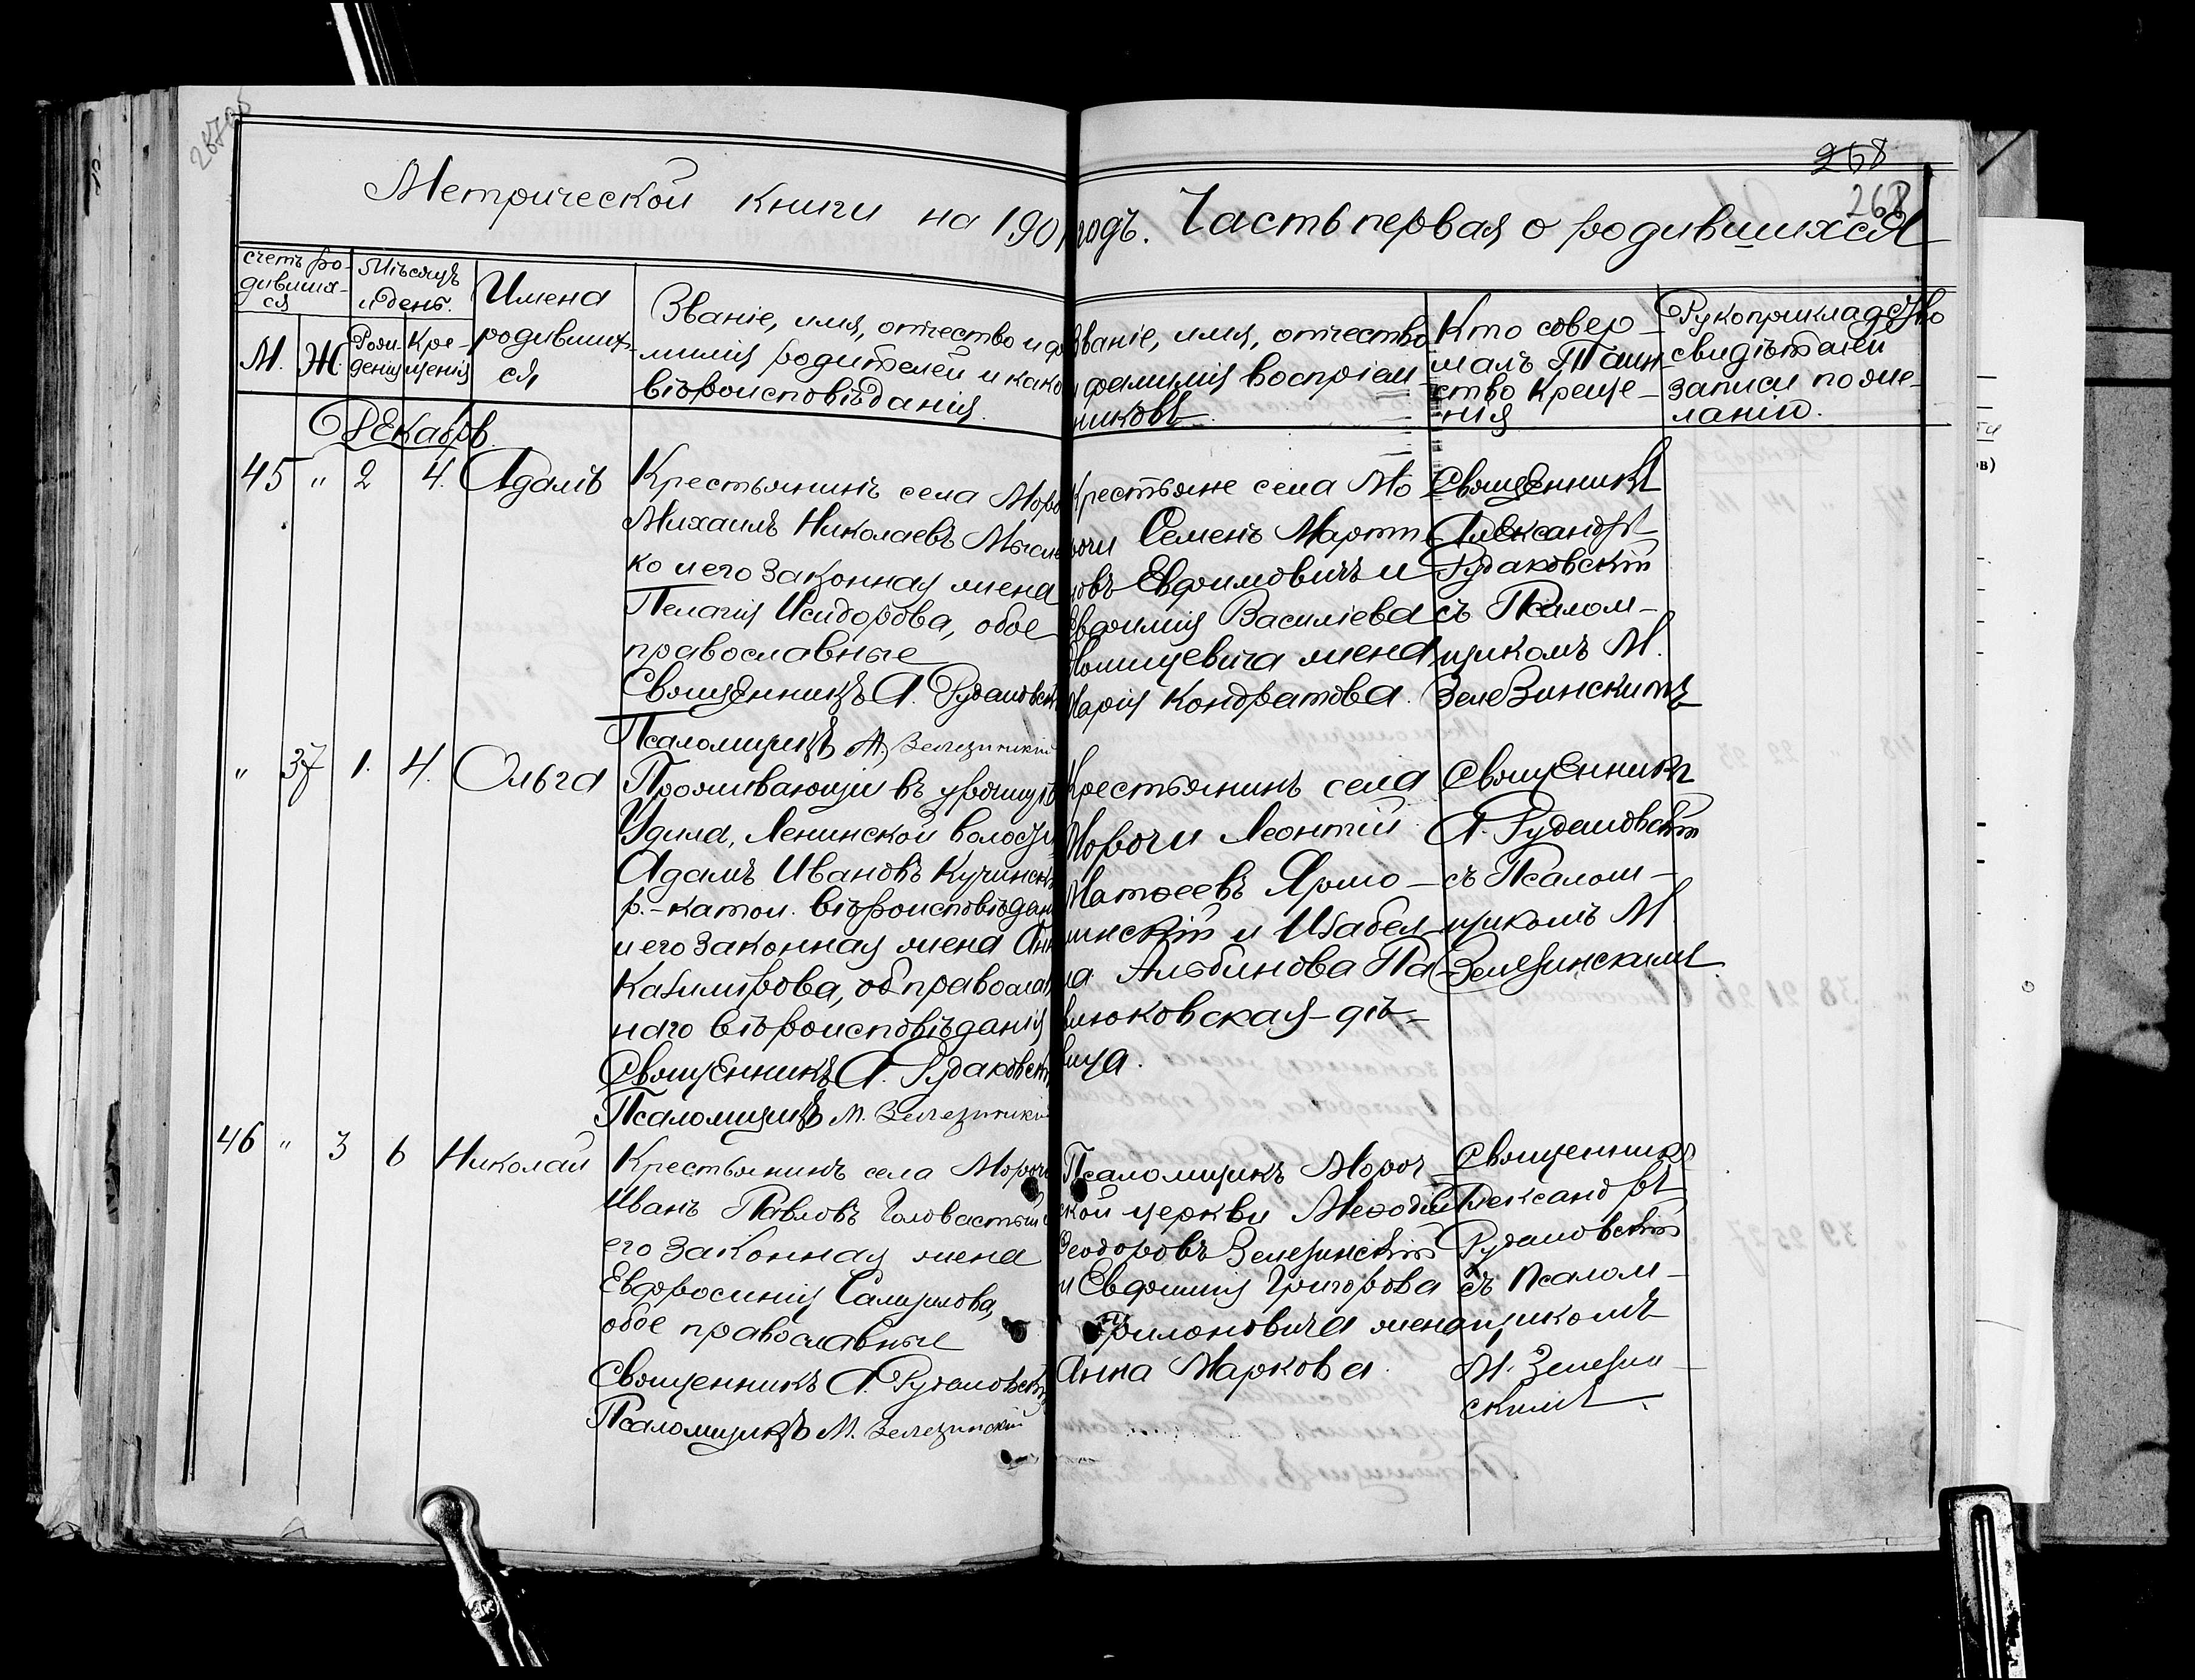 268
268
Метрической книги на 1901 годъ. Часть первая о родившихся
счетъ ро-
дивших-
ся
М.
Ж.
Мѣсяцъ
и день.
Рож-
денія
Кре-
щенія
Имена
родивших-
ся
Званіе, имя, отчество и фа
милія родителей и како
вѣроисповѣданія.
Званіе, имя, отчество
и фамилія воспріем-
никовъ
Кто совер-
шалъ Таин-
ство Креще-
нія
Рукоприкладство
свидѣтелей
записи по же-
ланію.
Декабрь.
45 " 2 4. Адамъ
Крестьянинъ села Моро
Михаилъ Николаевъ
ко и его законная жена
Пелагія Исидорова, обое
православные
Священникъ А. Рудаковск
Псаломщикъ М. Зелезинскій
Крестьяне села Мо
рочи Семенъ Марти
новъ Ефимовичъ и
Евфимія Василіева
жена
Марія Кондратова.
Священникъ
Александръ
Рудаковскій
съ Псалом-
щикомъ М.
Зелезинскимъ
" 37 1. 4. Ольга
Проживающій въ урочищѣ
Ленинской волости
Адамъ Ивановъ Кучинск
р.-катол. вѣроисповѣдан
и его законная жена Анн
Казимірова, об православ
наго вѣроисповѣданія
Священникъ А. Рудаковск
Псаломщикъ М. Зелезинскій
Крестьянинъ села
Морочи Леонтій
Матѳеевъ Ярмо-
линскій и Изабел
ла Альбинова Па
влюковская-дѣ-
вица.
Священникъ
А. Рудаковскій
съ Псалом-
щикомъ М
Зелезинскимъ.
46 " 3 6 Николай
Крестьянинъ села Мороч
Иванъ Павловъ Головастый
его законная жена
Евфросинія Самуилова,
обое православные
Священникъ А. Рудаковск
Псаломщикъ М. Зелезинскій
Псаломщикъ Мороч-
ской церкви Меѳодій
Ѳеодоровъ Зелезинскій
и Евфимія Григорова
жена
Анна Маркова.
Священникъ
Александръ
Рудаковскій
съ Псалом-
щикомъ
М. Зелезин-
скимъ.